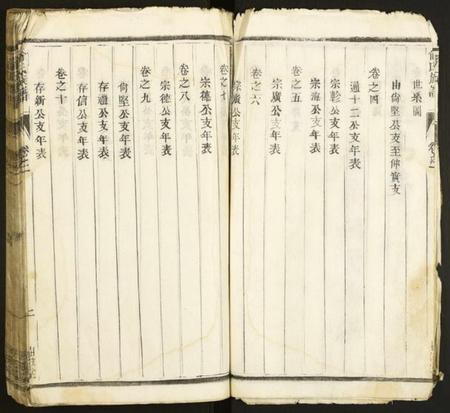 世系圖
由尙堅公支至仲賓支
卷之四
適十二公支年表
宗彰公支年表
宗海公支年表
卷之五
宗廣公支年表
卷之六
宗廣公支年表
卷之七
宗德公支年表
卷之八
宗德公支年表
卷之九
尙堅公支年表
存禮公支年表
存信公支年表
卷之十
存新公支年表